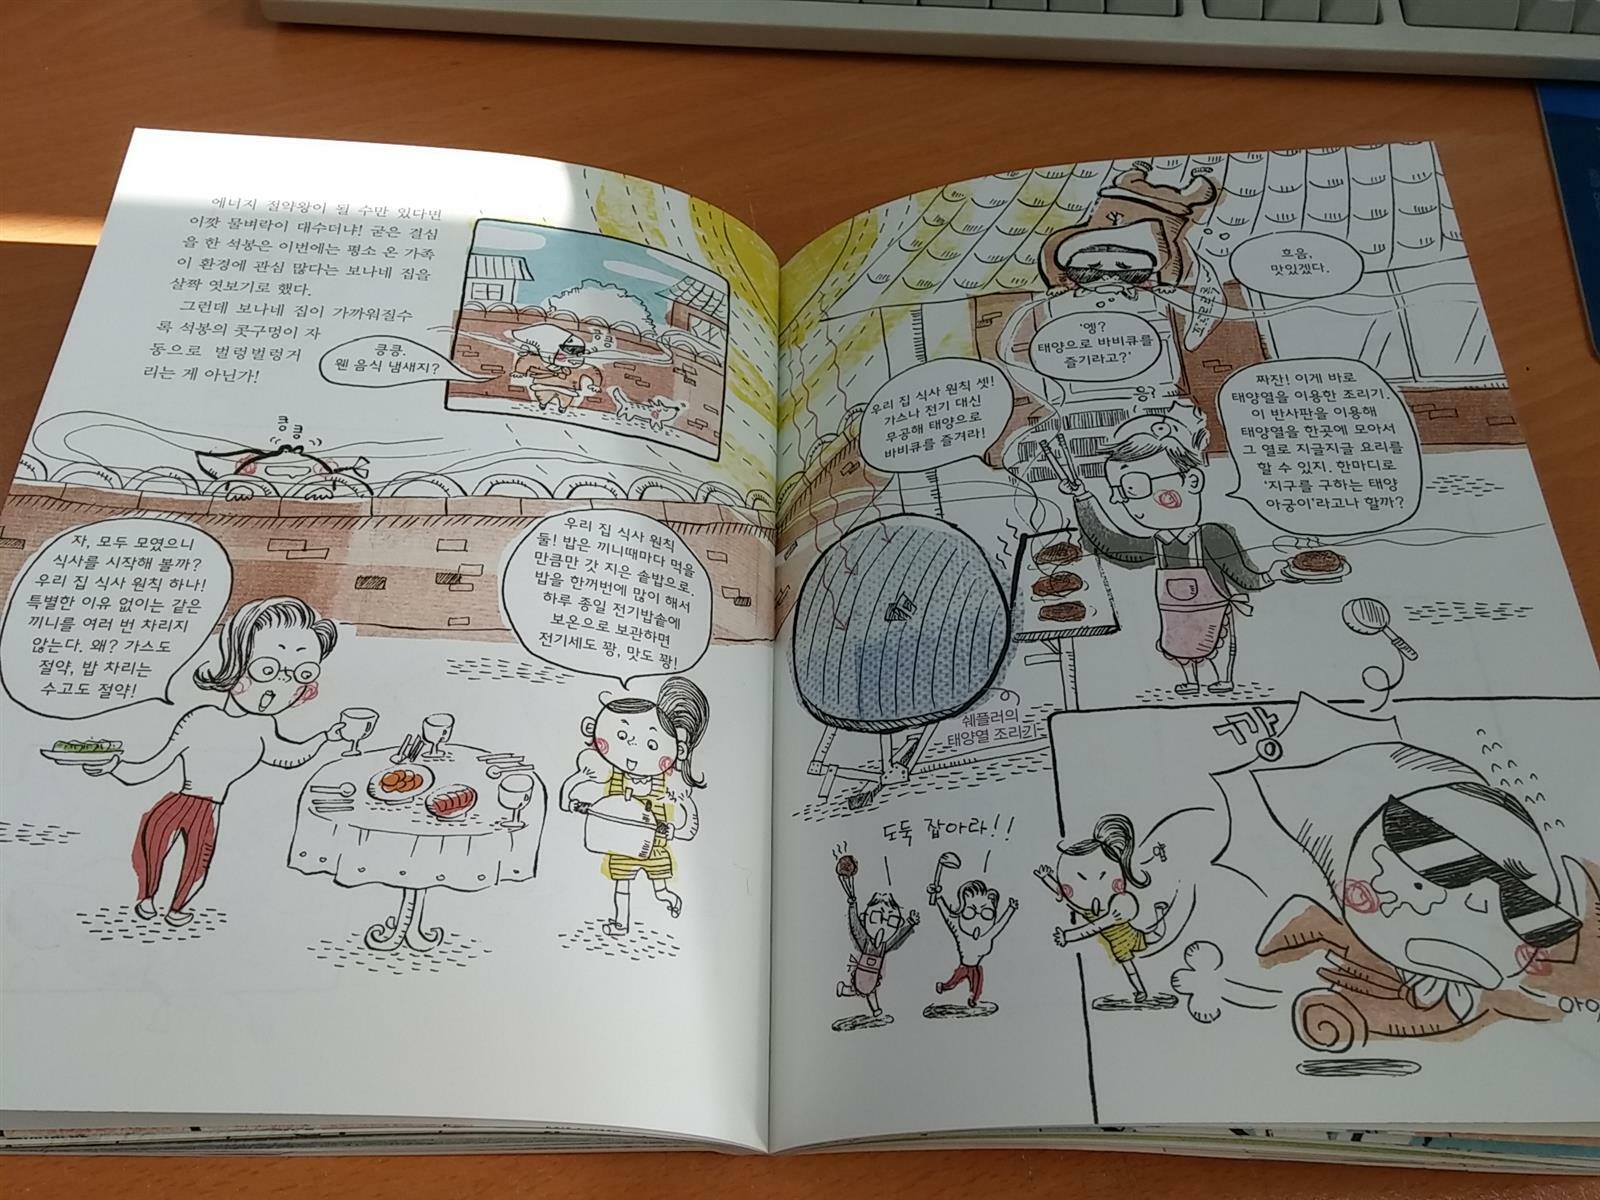 에너지 절약왕이 될 수만 있다면
이깟 물벼락이 대수더냐! 굳은 결심
을 한 석봉은 이번에는 평소 온 가족
이 환경에 관심 많다는 보나네 집을
살짝 엿보기로 했다.
그런데 보나네 집이 가까워질수
록 석봉의 콧구멍이 자
동으로 벌렁벌렁거
리는 게 아닌가!
킁킁.
웬 음식 냄새지?
킁킁
킁킁
자, 모두 모였으니
식사를 시작해 볼까?
우리 집 식사 원칙 하나!
특별한 이유 없이는 같은
끼니를 여러 번 차리지
않는다. 왜? 가스도
절약, 밥 차리는
수고도 절약!
우리 집 식사 원칙
둘! 밥은 끼니때마다 먹을
만큼만 갓 지은 솥밥으로.
밥을 한꺼번에 많이 해서
하루 종일 전기밥솥에
보온으로 보관하면
전기세도 꽝, 맛도 꽝!
흐음,
맛있겠다.
'엥?
태양으로 바비큐를
즐기라고?'
우리 집 식사 원칙 셋!
가스나 전기 대신
무공해 태양으로
바비큐를 즐겨라!
응?
짜잔! 이게 바로
태양열을 이용한 조리기.
이 반사판을 이용해
태양열을 한곳에 모아서
그 열로 지글지글 요리를
할 수 있지. 한마디로
'지구를 구하는 태양
아궁이'라고나 할까?
쉐플러의
태양열 조리기
깡
도둑 잡아라!!